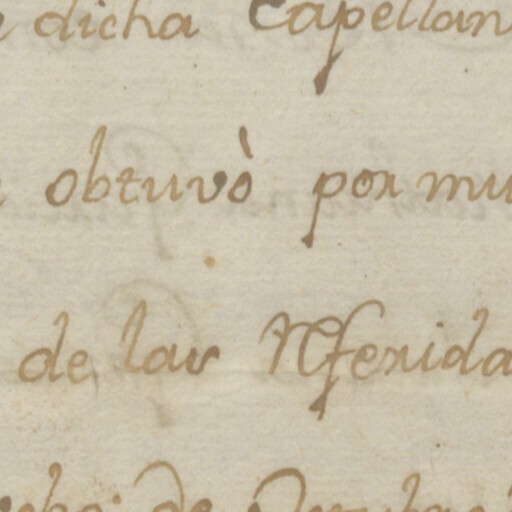 dicha Capellan
obtuvò por mu
de las Referida
de